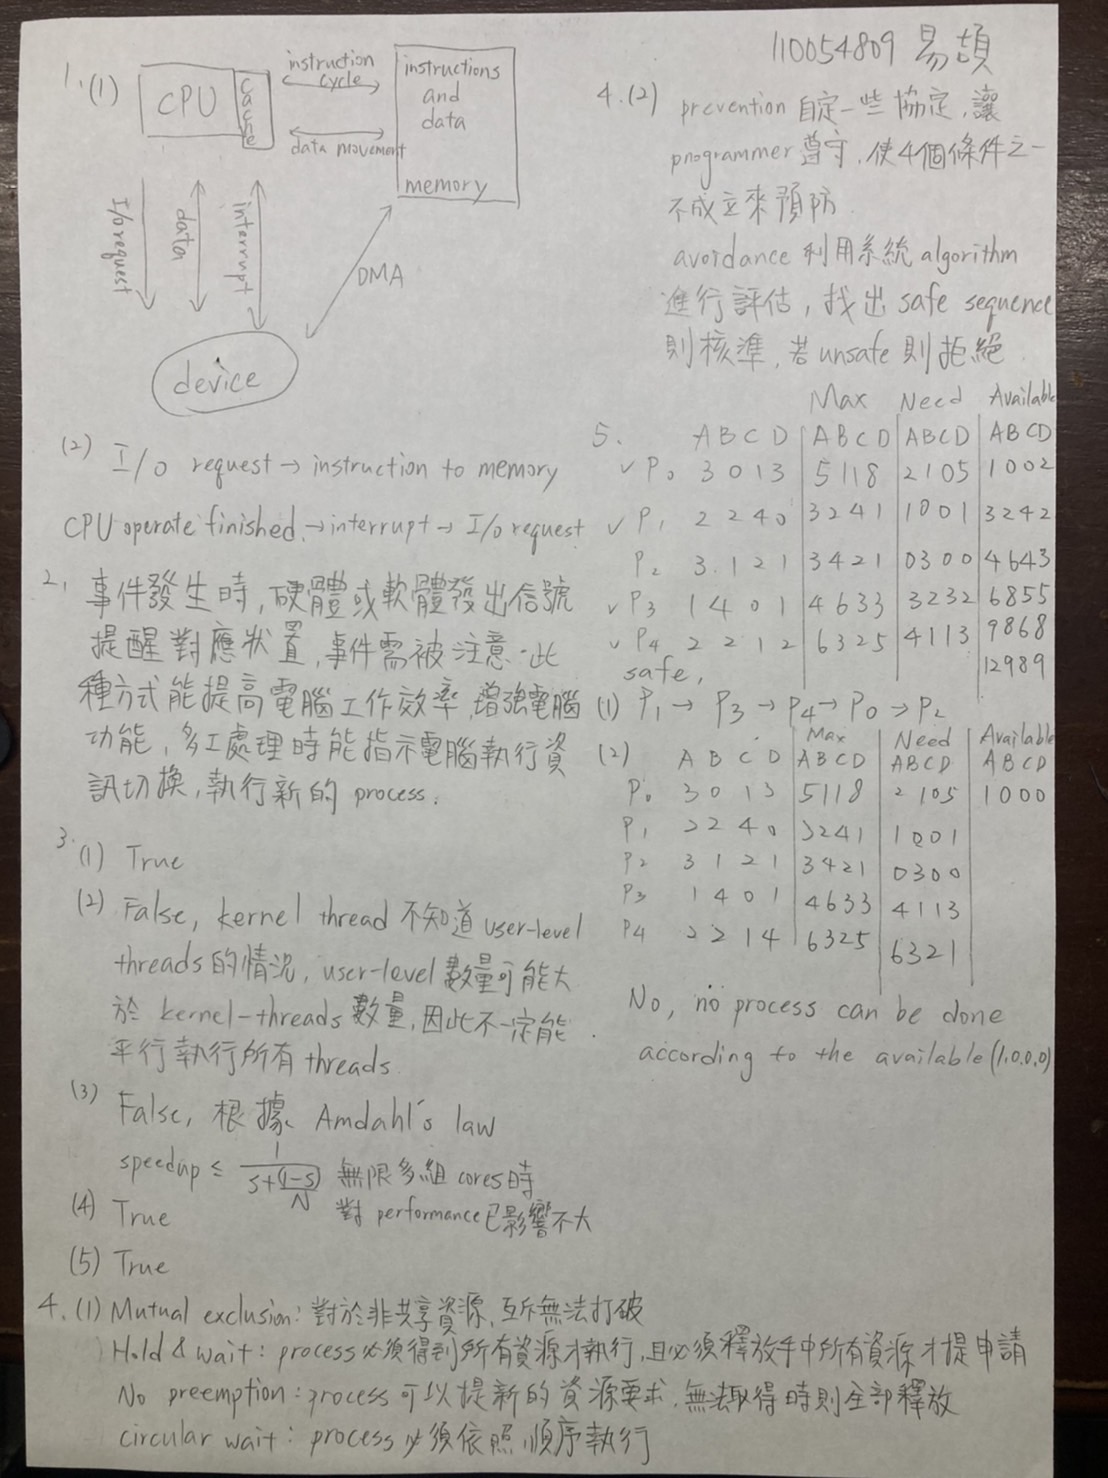 110054809 易頡
1. (1) CPU cache
instruction cycle
data movement
instructions and data
memory
I/O request
data
interrupt
DMA
device
(2) I/O request → instruction to memory
CPU operate finished. → interrupt → I/O request
2. 事件發生時, 硬體或軟體發出信號
提醒對應狀置, 事件需被注意. 此
種方式能提高電腦工作效率, 增強電腦
功能, 多工處理時能指示電腦執行資
訊切換, 執行新的 process.
3. (1) True
(2) False, kernel thread 不知道 user-level
threads 的情況, user-level 數量可能大
於 kernel-threads 數量, 因此不一定能
平行執行所有 threads.
(3) False, 根據 Amdahl's law
speedup ≤ 1/(S+(1-S)/N) 無限多組 cores 時
對 performance 已影響不大
(4) True
(5) True
4. (1) Mutual exclusion: 對於非共享資源, 互斥無法打破
Hold & wait: process 必須得到所有資源才執行, 且必須釋放手中所有資源才提申請
No preemption: process 可以提新的資源要求, 無法取得時則全部釋放
circular wait: process 必須依照順序執行
4. (2) prevention 自定一些協定, 讓
programmer 遵守, 使4個條件之一
不成立來預防
avoidance 利用系統 algorithm
進行評估, 找出 safe sequence
則核準, 若 unsafe 則拒絕
Max Need Available
5. A B C D A B C D A B C D A B C D
✓ P0 3 0 1 3 5 1 1 8 2 1 0 5 1 0 0 2
✓ P1 2 2 4 0 3 2 4 1 1 0 0 1 3 2 4 2
P2 3. 1 2 1 3 4 2 1 0 3 0 0 4 6 4 3
✓ P3 1 4 0 1 4 6 3 3 3 2 3 2 6 8 5 5
✓ P4 2 2 1 2 6 3 2 5 4 1 1 3 9 8 6 8
12 9 8 9
safe,
(1) P1 → P3 → P4 → P0 → P2
Max Need Available
(2) A B C D A B C D A B C D A B C D
P0 3 0 1 3 5 1 1 8 2 1 0 5 1 0 0 0
P1 2 2 4 0 3 2 4 1 1 0 0 1
P2 3 1 2 1 3 4 2 1 0 3 0 0
P3 1 4 0 1 4 6 3 3 4 1 1 3
P4 2 2 1 4 6 3 2 5 6 3 2 1
No, no process can be done
according to the available (1,0,0,0)